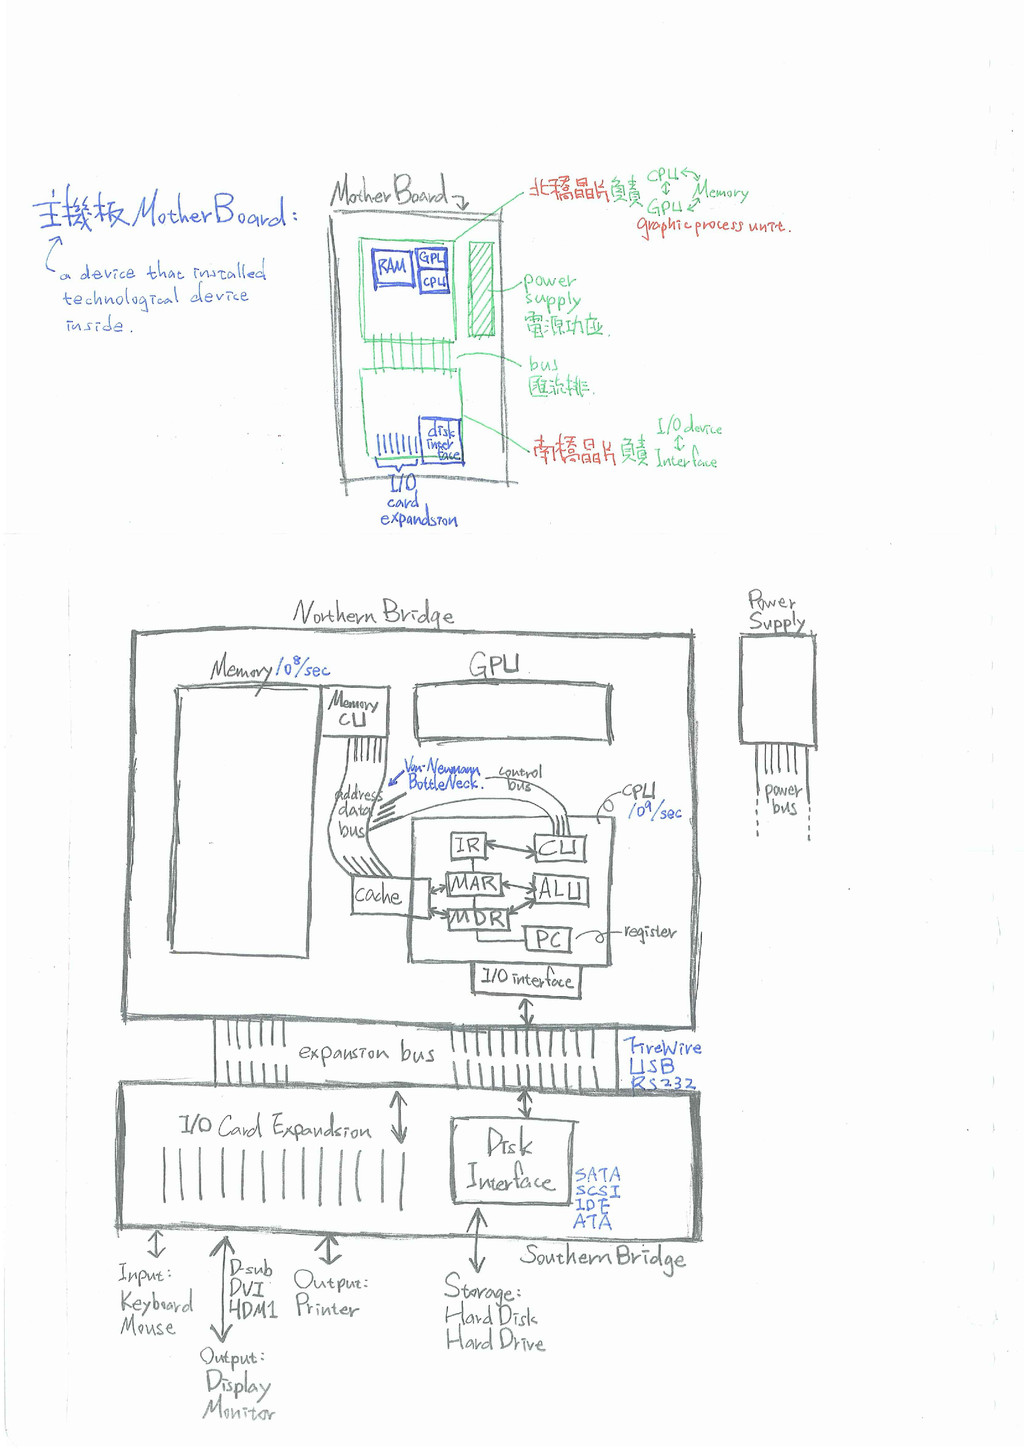 主機板 MotherBoard:
a device that installed
technological device
inside.
MotherBoard
RAM
GPU
CPU
北橋晶片 負責
CPU
Memory
GPU
graphic process unit.
power
supply
電源功应
bus
匯流排
disk
inter
face
I/O
card
expandsion
南橋晶片 負責
I/O device
Interface
Northern Bridge
Memory 10⁸/sec
Memory
CU
GPU
Von-Neumann
BottleNeck.
control
bus
address
data
bus
CPU
10⁹/sec
IR
CU
MAR
ALU
MDR
PC
register
cache
I/O interface
Power
Supply
power
bus
expansion bus
FireWire
USB
RS232
I/O Card Expandsion
Disk
Interface
SATA
SCSI
IDE
ATA
Southern Bridge
Input:
Keyboard
Mouse
D-sub
DVI
HDMI
Output:
Display
Monitor
Output:
Printer
Storage:
Hard Disk
Hard Drive